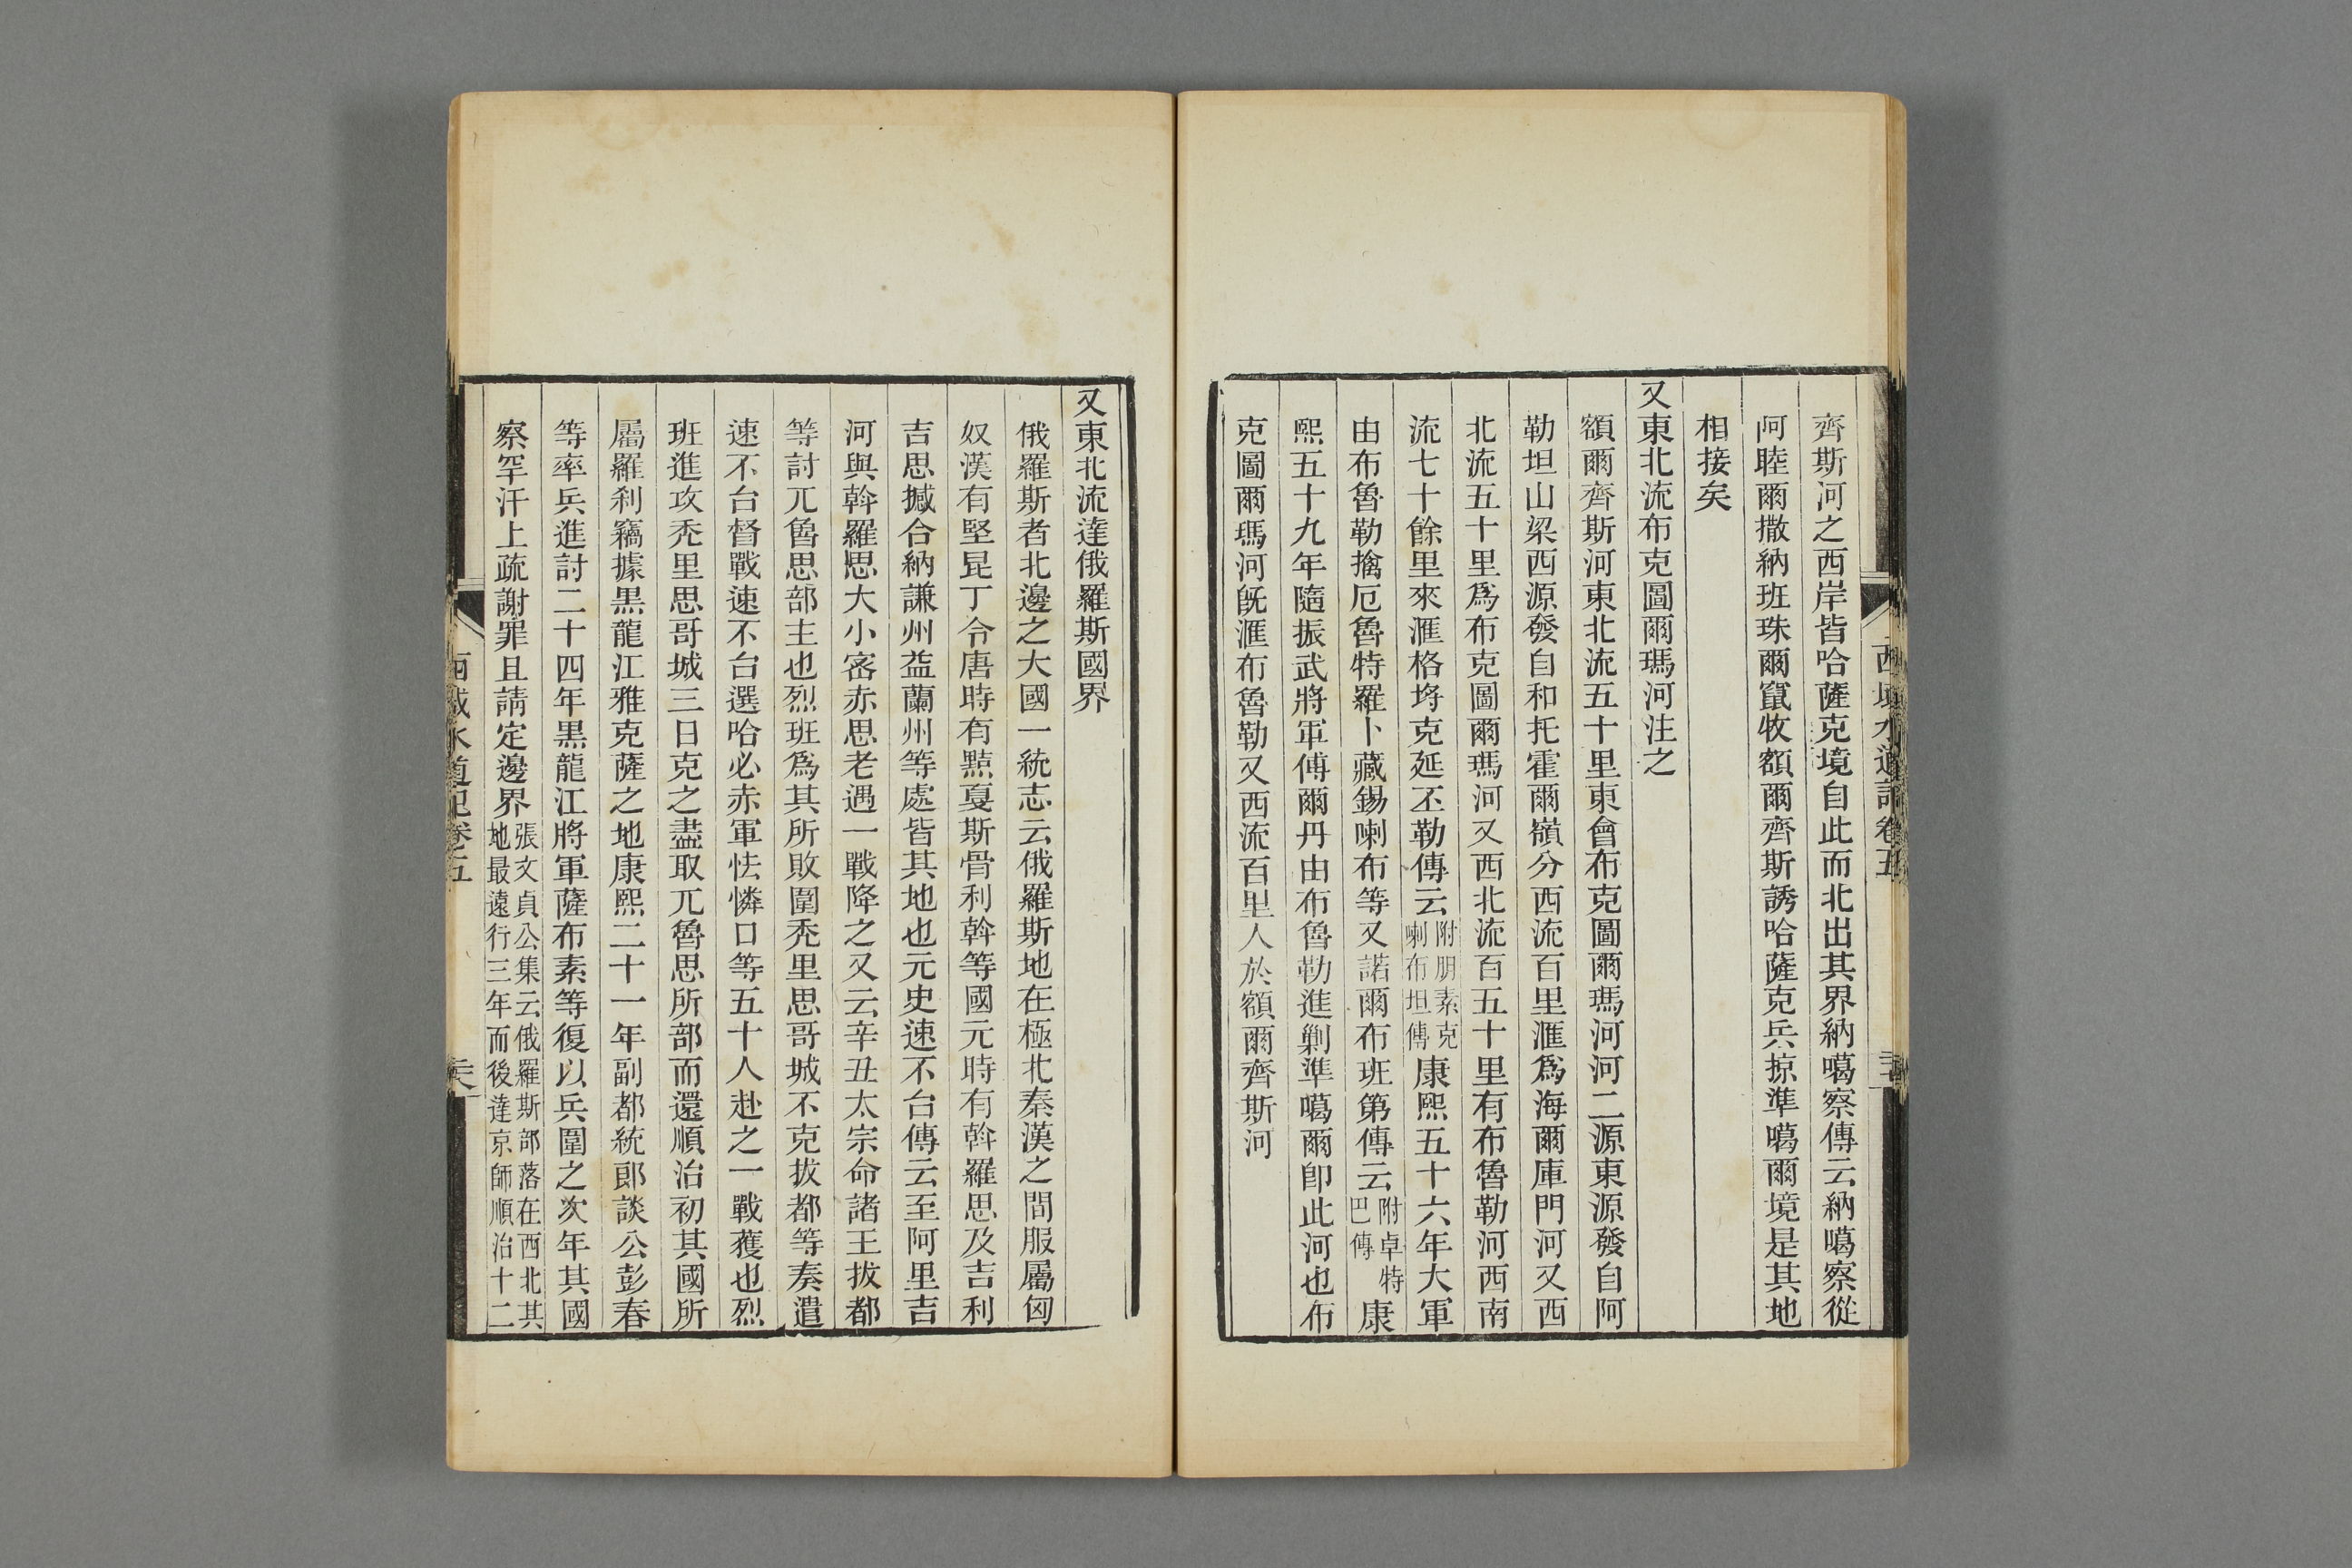 齊斯河之西岸皆哈薩克境自此而北出其界納噶察傳云納噶察從
阿睦爾撒納班珠爾竄牧額爾齊斯誘哈薩克兵掠準噶爾境是其地
相接矣
又東北流布克圖爾瑪河注之
額爾齊斯河東北流五十里東會布克圖爾瑪河河二源東源發自阿
勒坦山梁西源發自和托霍爾嶺分西流百里滙爲海爾庫門河又西
北流五十里爲布克圖爾瑪河又西北流百五十里有布魯勒河西南
流七十餘里來滙格埒克延丕勒傳云附朋素克喇布坦傳康熙五十六年大軍
由布魯勒擒厄魯特羅卜藏錫喇布等又諾爾布班第傳云附卓特巴傳康
熙五十九年隨振武將軍傅爾丹由布魯勒進剿準噶爾卽此河也布
克圖爾瑪河旣滙布魯勒又西流百里入於額爾齊斯河
西域水道記卷五
又東北流達俄羅斯國界
俄羅斯者北邊之大國一統志云俄羅斯地在極北秦漢之間服屬匈
奴漢有堅昆丁令唐時有黠戛斯骨利斡等國元時有斡羅思及吉利
吉思撼合納謙州益蘭州等處皆其地也元史速不台傳云至阿里吉
河與斡羅思大小密赤思老遇一戰降之又云辛丑太宗命諸王拔都
等討兀魯思部主也烈班爲其所敗圍禿里思哥城不克拔都等奏遣
速不台督戰速不台選哈必赤軍怯憐口等五十人赴之一戰獲也烈
班進攻禿里思哥城三日克之盡取兀魯思所部而還順治初其國所
屬羅刹竊據黑龍江雅克薩之地康熙二十一年副都統郎談公彭春
等率兵進討二十四年黑龍江將軍薩布素等復以兵圍之次年其國
察罕汗上疏謝罪且請定邊界張文貞公集云俄羅斯部落在西北其地最遠行三年而後達京師順治十二
西域水道記卷五